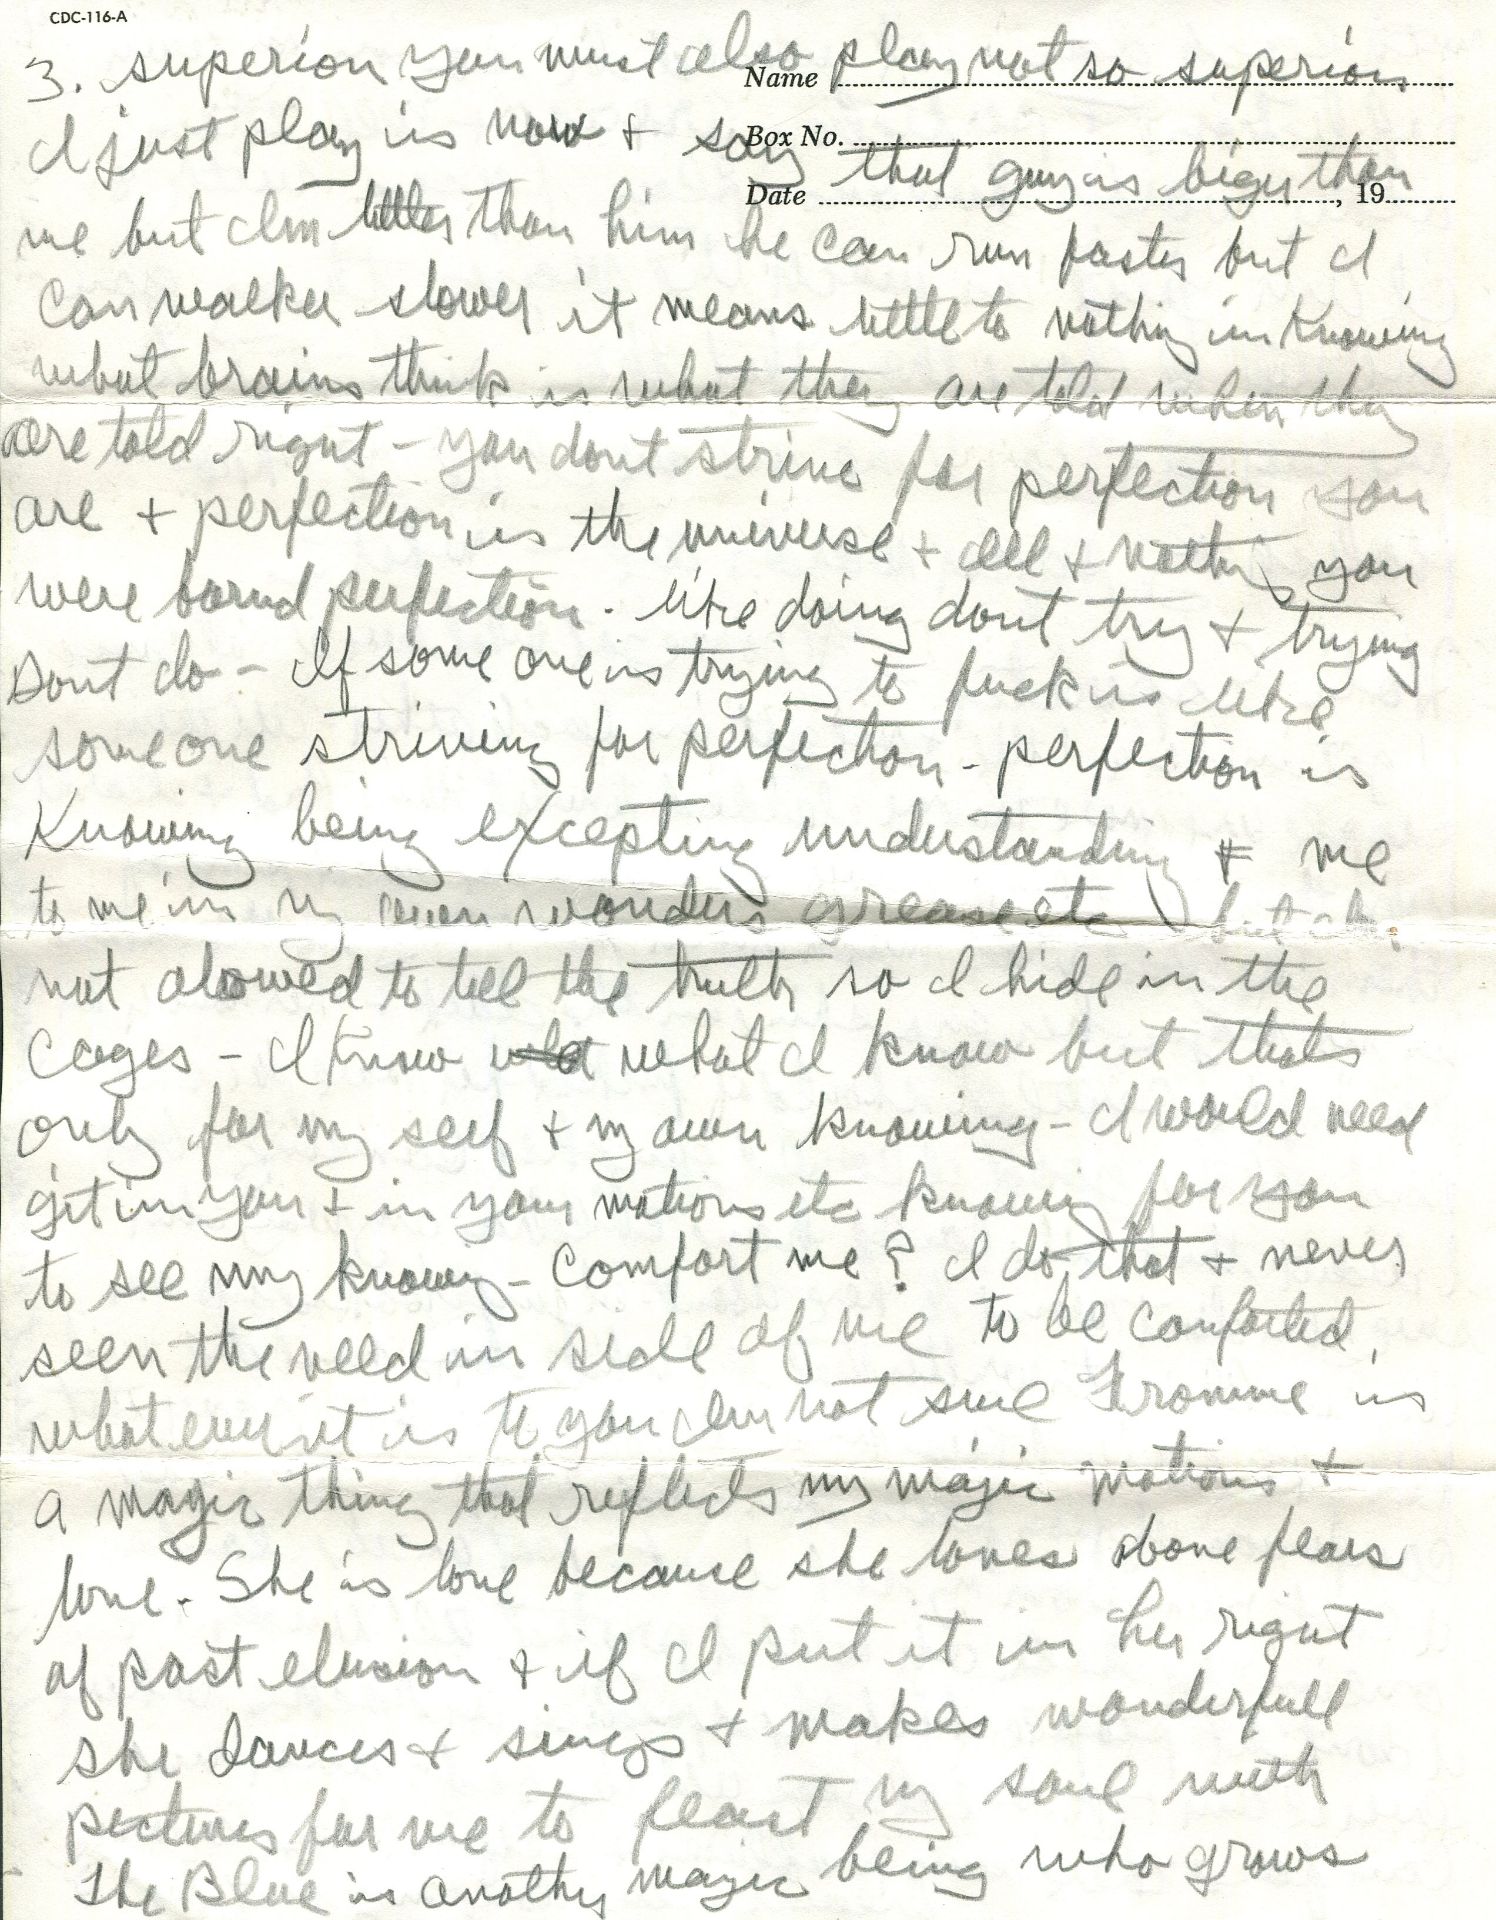 CDC-116-A
3. superior you must also play not so superior
Name
I just play is now + say that guy is biger than
Box No.
Date , 19
me but Im littler than him he can run faster but I
can walker slower it means little to nothing in Knowing
what brains think is what they are told when they
are told right - you dont strive for perfection you
are + perfection is the universe + all + nothing you
were bornd perfection. like doing dont try + trying
Dont do - If some one is trying to fuck is like
someone striving for perfection - perfection is
Knowing being excepting understanding + me
to me in my own wonders grease etc but Im
not alowed to tell the truth so I hide in the
Cages - I know what I know but thats
only for my self + my own knowing - I would need
git in you + in your motions etc knowing for you
to see my knowing - Comfort me? I do that + never
seen the need in side of me to be comforted.
what ever it is to you Im not sure Fromme is
a magic thing that reflects my magic motions +
love. She is love because she loves above fears
of past elusion + if I put it in her right
she dances + sings + makes wonderfull
pictures for me to feast my soul with
The Blue is another magic being who grows